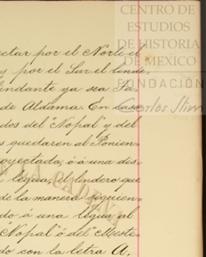 CENTRO DE
ESTUDIOS
DE HISTORIA
DE MÉXICO
FUNDACIÓN
Carlos Slim
por el Norte el
y por el Sur el linde
ya sea
de Aldama. En
dos del "Nopal" y del
quedaren al Ponien-
oyectada, ó á una dis-
legua, el lindero que
de la manera siguien-
do á una legua al
"Nopal" ó del "Mezte
do con la letra A,